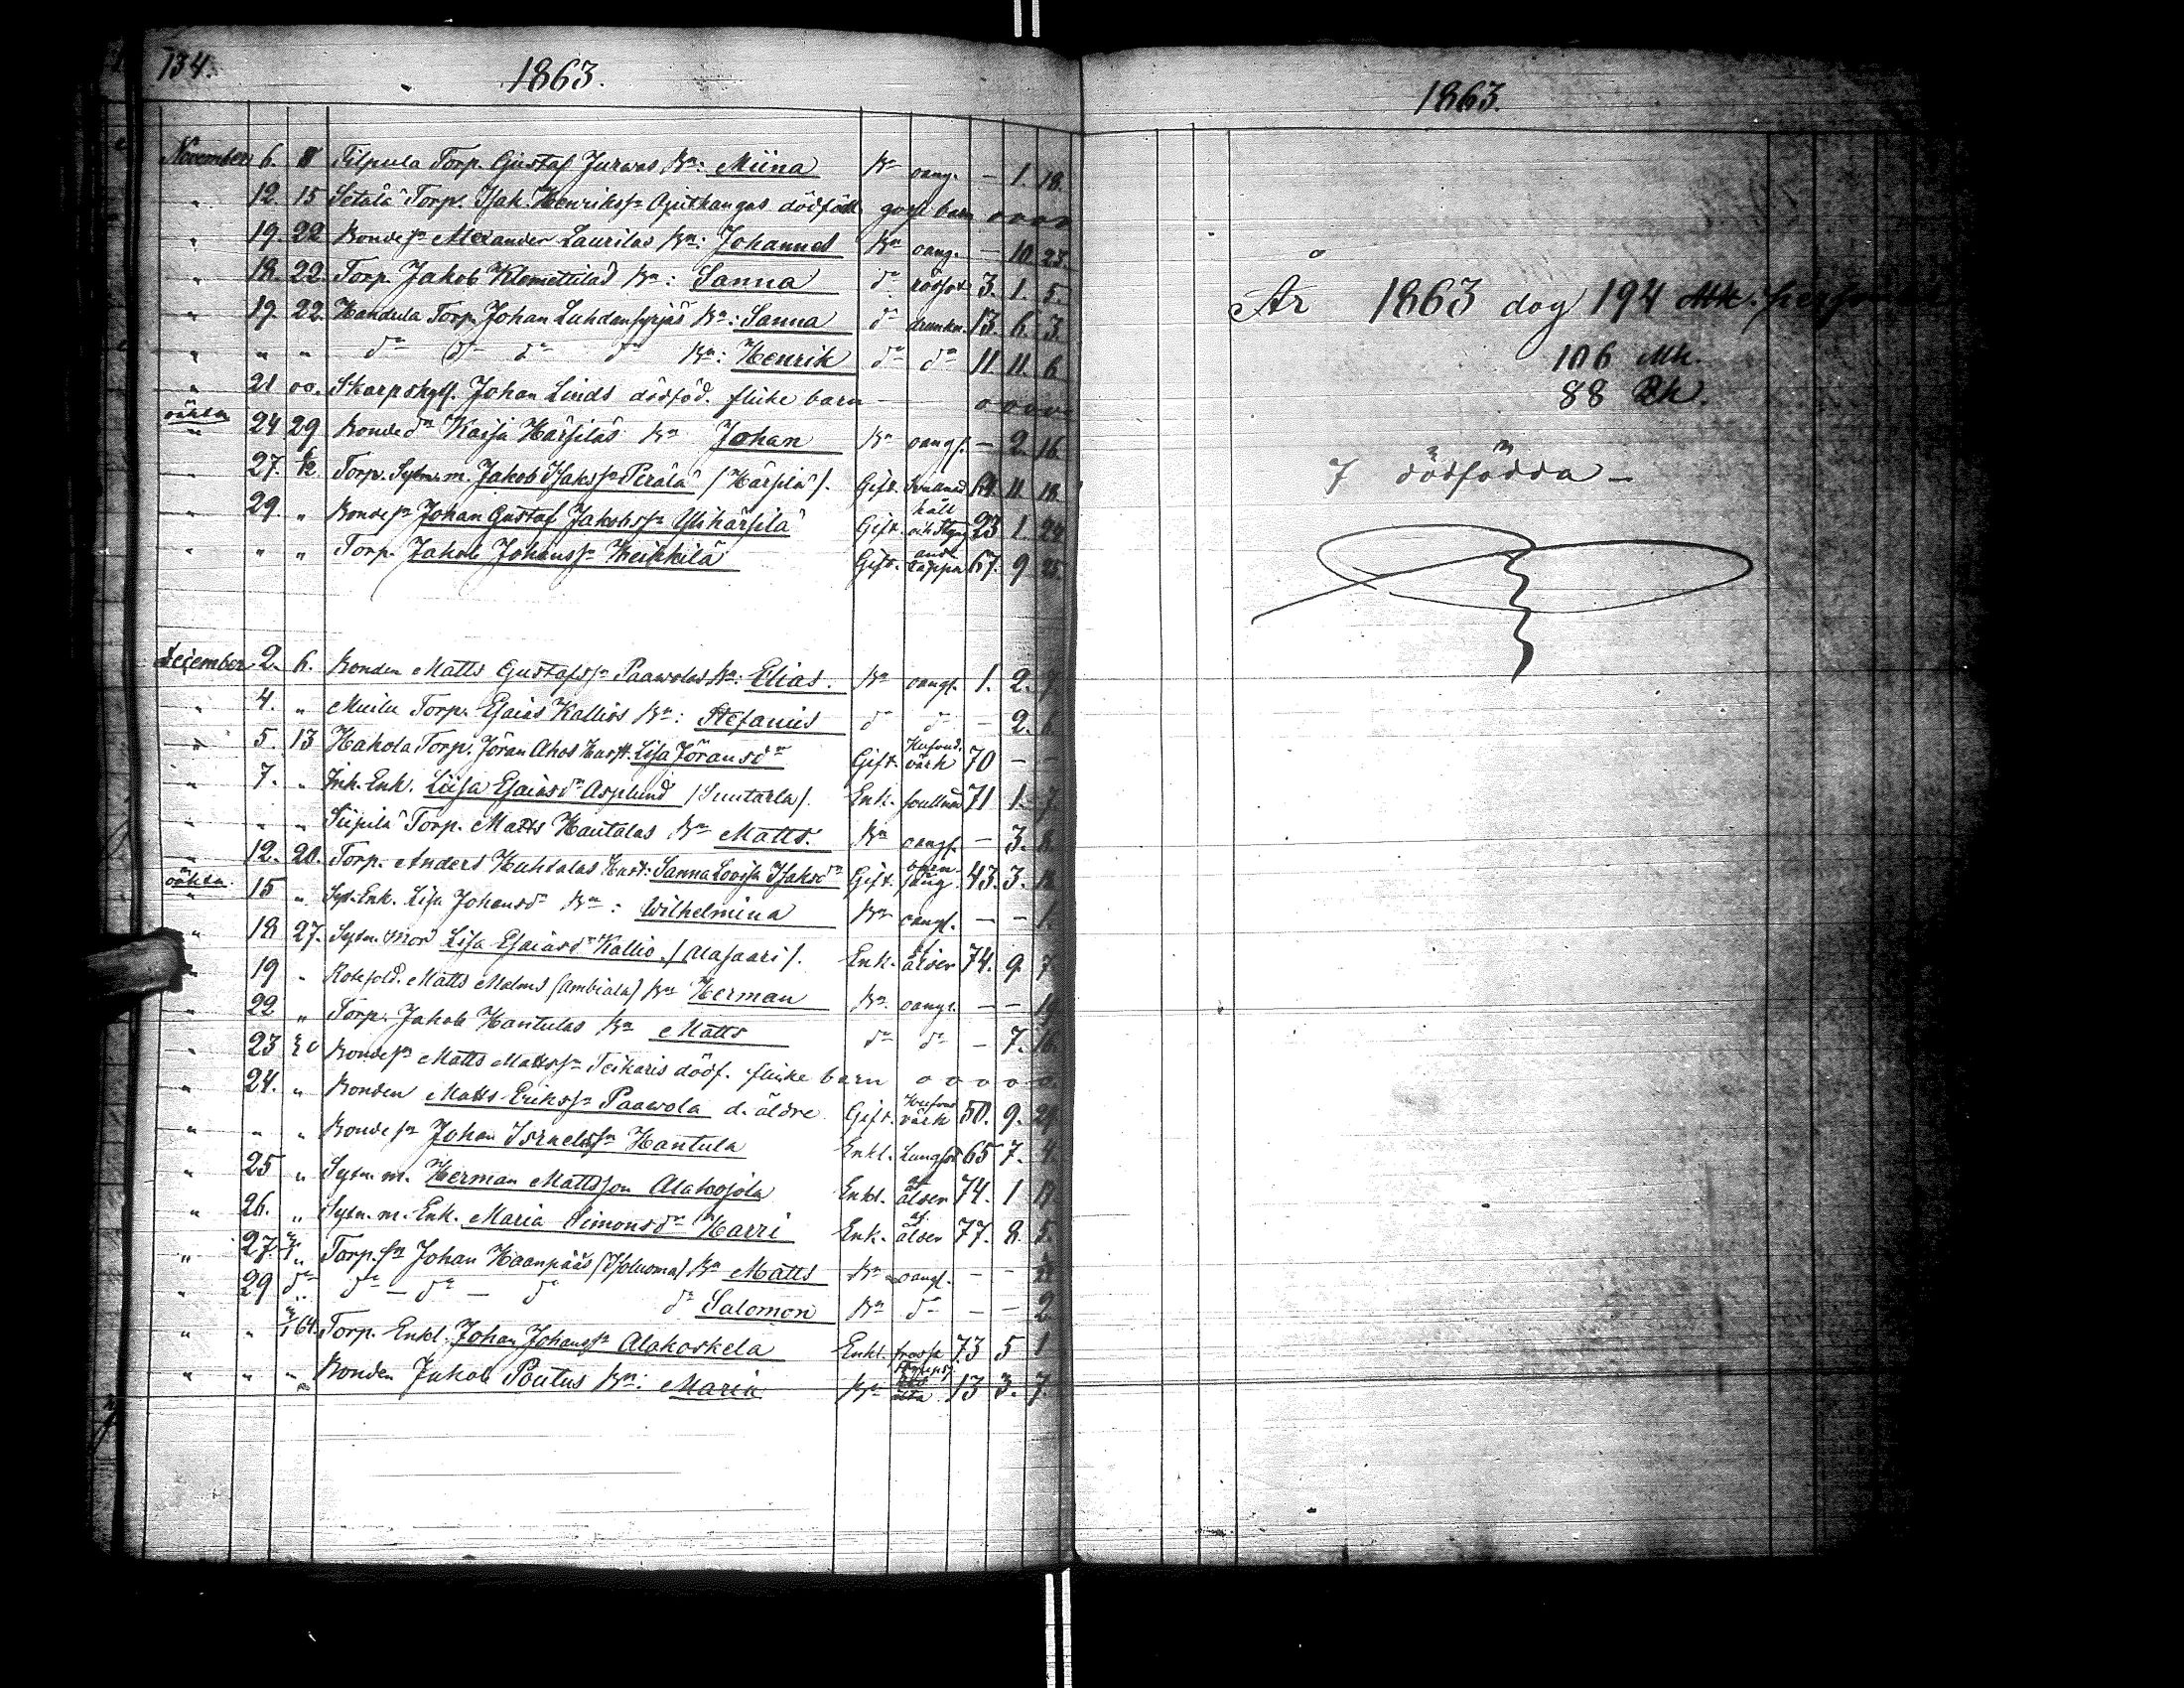 134.
1863.
November 6. 8 Tilpula Torp. Gustaf Jurwas Bn: Miina Bn oang. - 1. 18.
" 12. 15 Setälä Torp. Isak Henrikss. dödfödt gosse barn o o o o
" 19. 22 Bondes. Alexander Laurilas Bn: Johannes Bn oang. - 10. 23.
" 18. 22. Torp. Jakob Klemettilas Bn: Sanna dn rödsot 3. 1. 5.
" 19. 22. Handula Torp. Johan Luhdansyrjäs Bn: Sanna dn drunkn. 13. 6. 3.
" " " dn dn dn dn Bn: Henrik dn dn 11 11. 6
" 21 oo. Skarpskytt. Johan Linds dödföd. flicke barn - o o o o
oäkta
" 24 29 Bondedn Kaisa Härsiläs Bn Johan Bn oangf. - 2. 16.
" 27. Torp. Sytn. m. Jakob Isakss. Perälä (Härsilä). Gift. 64. 11. 18.
" 29. " Bondesn Johan Gustaf Jakobss. Ylihärsilä Gift. håll och styng 23 1. 24
" " " Torp. Jakob Johanss. Heikkilä Gift. andtäppa 67. 9 25.
December 2. 6. Bonden Matts Gustafss. Paawolas Bn: Elias. Bn oangf. 1. 2. 7
" 4. " Muilu Torp. Esaias Kallios Bn: Stefanus dn dn - 2. 6.
" 5. 13 Hakola Torp. Jöran Ahos Hustr. Lisa Jöransdn Gift. Hufvud värk 70 - -
" 7. " Inh. Enk. Liisa Esaiasdn Asplund (Suutarla). Enk. 71 1. 7
" " " Siipilä Torp. Matts Hautalas Bn Matts. Bn oangf. - 3. 8.
" 12. 20. Torp. Anders Huhtalas Hust: Sanna Lovisa Isaksdn Gift. barn säng 43. 3. 18
oäkta
" 15 " Syt. Enk. Lisa Johansdn Bn: Wilhelmina Bn oangf. - - 1.
" 18 27. Sytn. mor Lisa Esaiasdn Kallio (Alasaari). Enk. af ålder 74. 9. 7
" 19 " Rotesold. Matts Malms (Ambiala) Bn Herman Bn oangf. - - 19
" 22 " Torp. Jakob Hantulas Bn Matts dn dn - 7. 16.
" 23 Bondesn Matts Mattss. Teikaris dödf. flicke barn o o o o o
" 24. " Bonden Matts Erikss. Paawola d. äldre Gift. Hufvud värk 50. 9. 29
" " " Bondesn Johan Israelss. Hantula Enkl. Lungsot 65 7. 4.
" 25 " Sytn. m. Herman Mattsson Alakojola Enkl. af ålder 74. 1 17
" 26. " Sytn. m. Enk. Maria Simonsdn Harri Enk. af ålder 77. 8. 5.
" 27. " Torp. sn Johan Haanpääs (Isoluoma) Bn Matts Bn oangf. - -
" 29 dn dn - dn - dn dn Salomon Bn dn - - 2
" " 64. Torp. Enkl. Johan Johanss. Alakoskela Enkl. frossa 73 5 1
" " " Bonden Jakob Pontus Bn: Maria Bn 13 3. 7.
1863.
År 1863 dog 194
106 Mk.
88 Qk.
7 dödfödda -